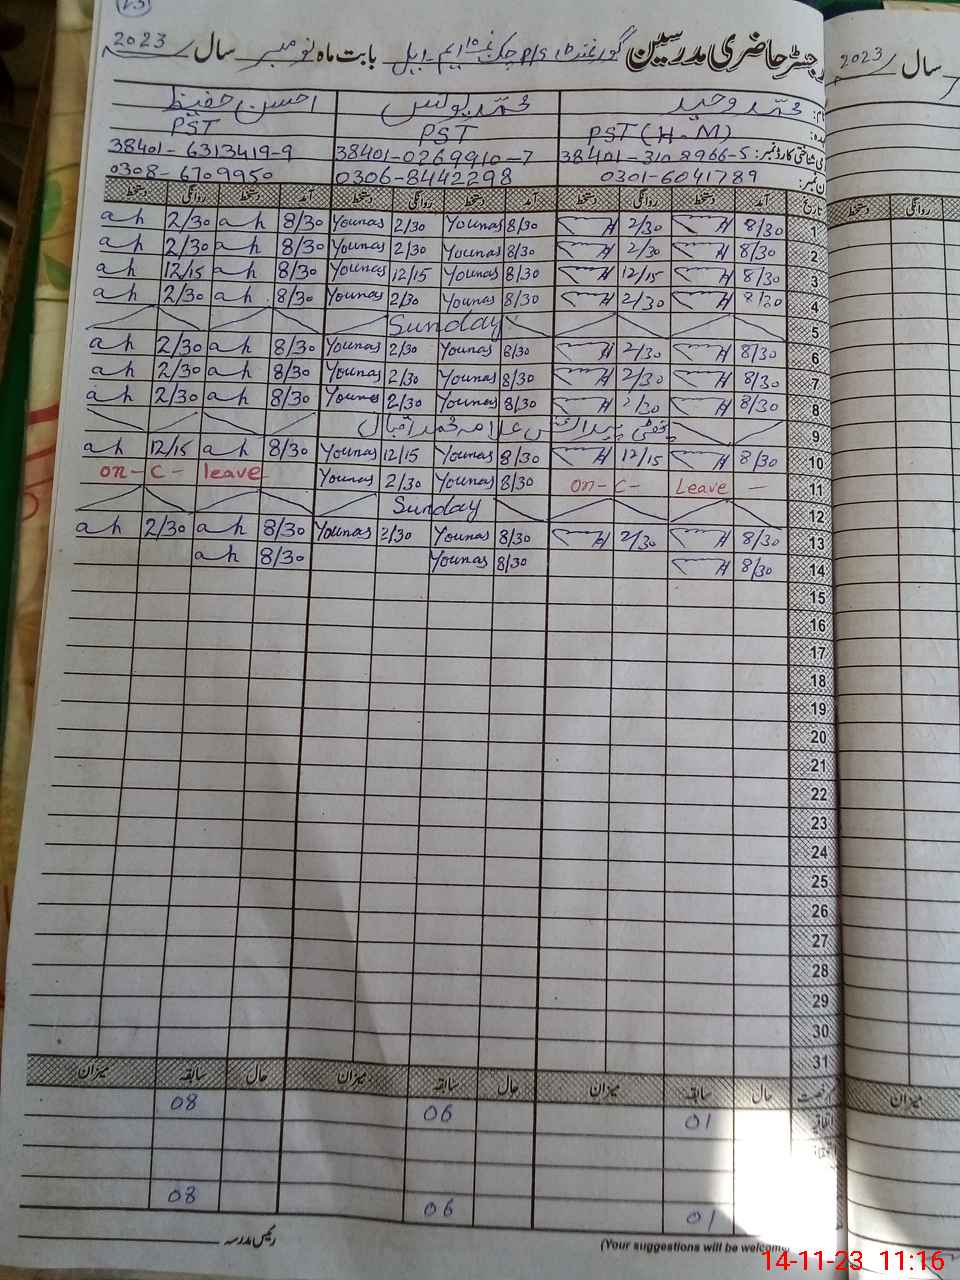 23
رجسٹر حاضری مدرسین گورنمنٹ P/S چک نمبر 10 ایم۔ایل بابت ماہ نومبر سال 2023
سال 2023
نام: محمد وحید محمد یونس احسن حفیظ
عہدہ: PST (H-M) PST PST
شناختی کارڈ نمبر: 38401-3108966-5 38401-0269910-7 38401-6313419-9
فون نمبر: 0301-6041789 0306-8442298 0308-6709950
تاریخ آمد دستخط روانگی دستخط آمد دستخط روانگی دستخط آمد دستخط روانگی دستخط
روانگی دستخط
1 8/30 H 2/30 H 8/30 Younas 2/30 Younas 8/30 ah 2/30 ah
2 8/30 H 2/30 H 8/30 Younas 2/30 Younas 8/30 ah 2/30 ah
3 8/30 H 12/15 H 8/30 Younas 12/15 Younas 8/30 ah 12/15 ah
4 8/30 H 2/30 H 8/30 Younas 2/30 Younas 8/30 ah 2/30 ah
5 Sunday
6 8/30 H 2/30 H 8/30 Younas 2/30 Younas 8/30 ah 2/30 ah
7 8/30 H 2/30 H 8/30 Younas 2/30 Younas 8/30 ah 2/30 ah
8 8/30 H 2/30 H 8/30 Younas 2/30 Younas 8/30 ah 2/30 ah
9 چھٹی پیدائش علامہ محمد اقبال
10 8/30 H 12/15 H 8/30 Younas 12/15 Younas 8/30 ah 12/15 ah
11 on - C - Leave - 8/30 Younas 2/30 Younas on - C - leave
12 Sunday
13 8/30 H 2/30 H 8/30 Younas 2/30 Younas 8/30 ah 2/30 ah
14 8/30 H 8/30 Younas 8/30 ah
15
16
17
18
19
20
21
22
23
24
25
26
27
28
29
30
31
رخصت حال سابقہ میزان حال سابقہ میزان حال سابقہ میزان
میزان
اتفاقیہ 01 06 08
01 06 08
رئیس مدرسہ
(Your suggestions will be welcome)
14-11-23 11:16